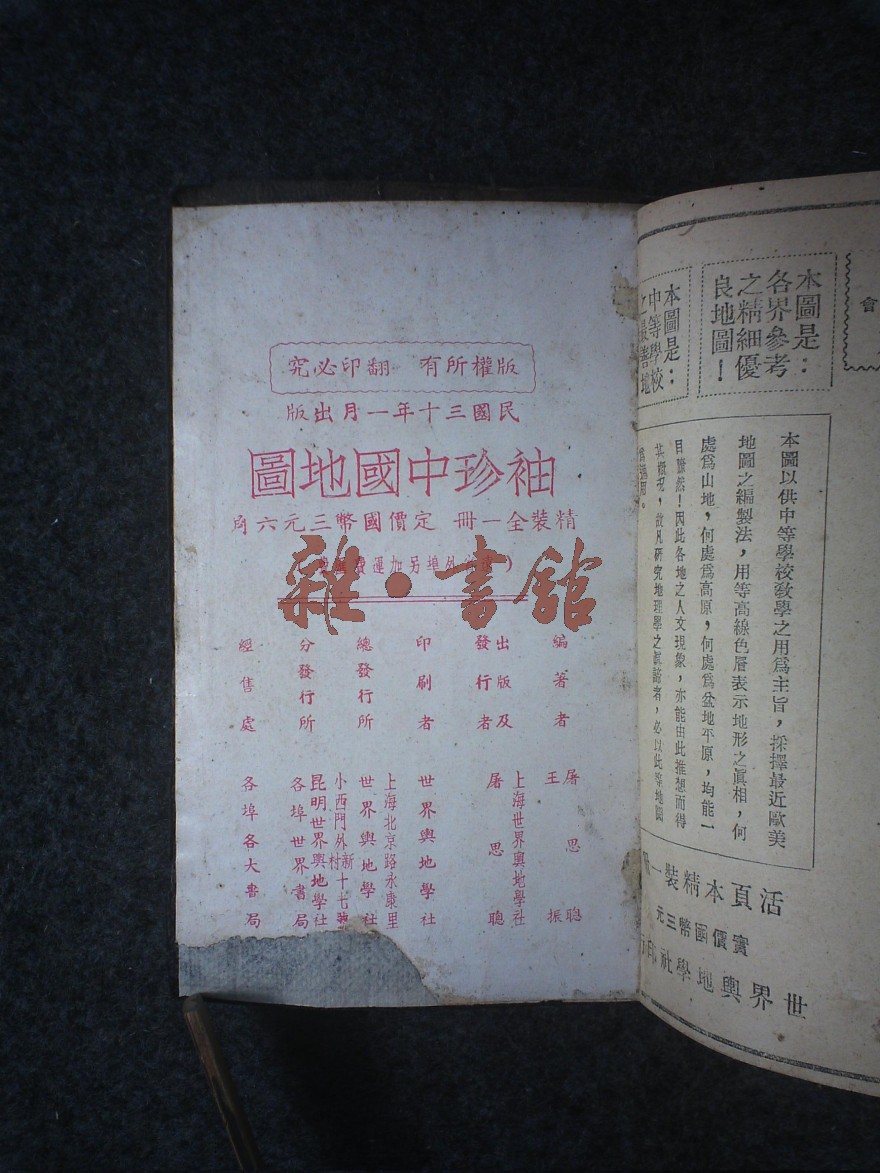 版權所有 翻印必究
民國三十年一月出版
袖珍中國地圖
精裝全一冊 定價國幣三元六角
外埠另加運費
雜·書館
編著者 屠思聰 王振
出版及發行者 上海世界輿地學社 屠思聰
印刷者 世界輿地學社
總發行所 上海北京路永康里 世界輿地學社
分發行所 小西門外新村十七號 昆明世界輿地學社 各埠世界書局
經售處 各埠各大書局
會
本圖是：
各界參考
之精細優
良地圖！
本圖是：
中等學校
之最善地
本圖以供中等學校教學之用爲主旨，採擇最近歐美
地圖之編製法，用等高線色層表示地形之眞相，何
處爲山地，何處爲高原，何處爲盆地平原，均能一
目瞭然！因此各地之人文現象，亦能由此推想而得
其概況，故凡研究地理學之眞諦者，必以此案地圖
用。
活頁本精裝一
實價國幣三元
世界輿地學社印行